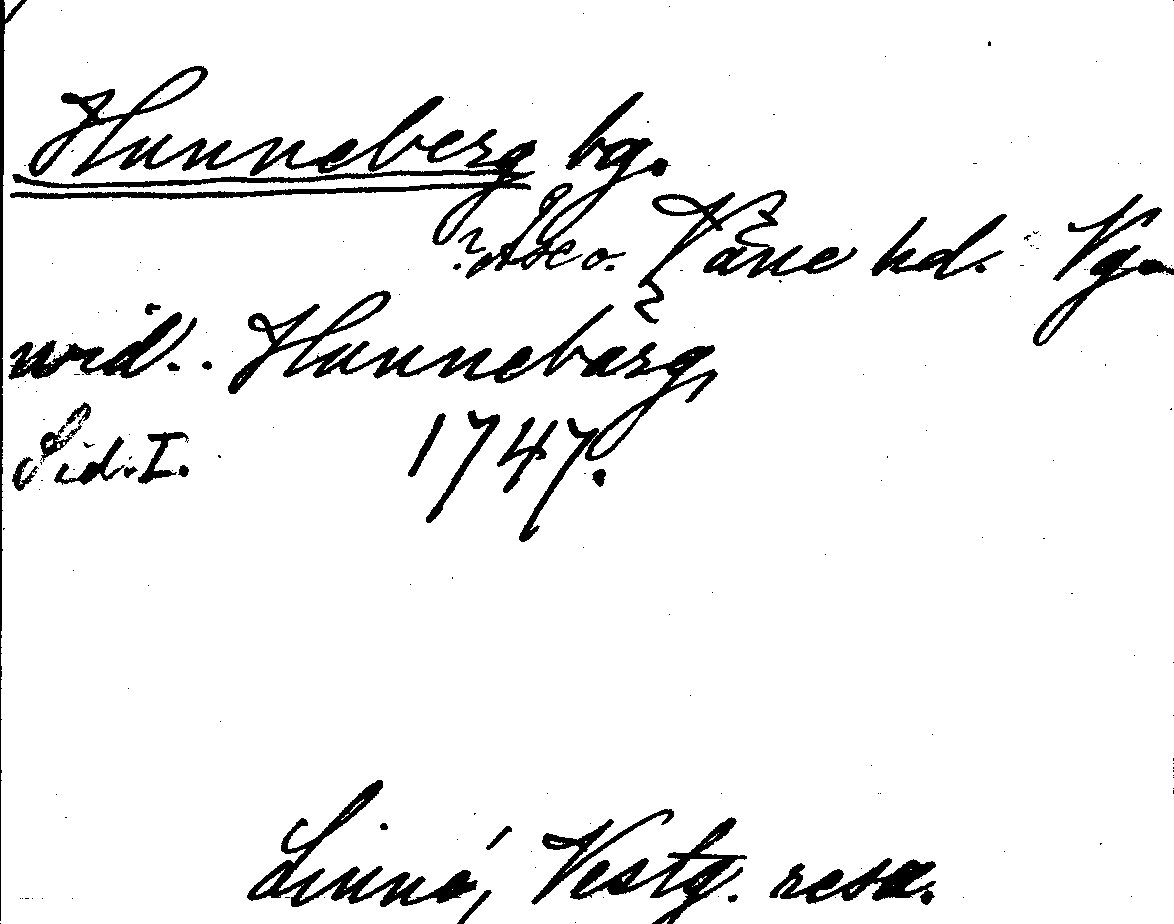 Hunneberg bg.
Åse o. Väne hd. Vg.
wid.. Hunnebärg,
Sid. I. 1747.
Linné, Vestg. resa.